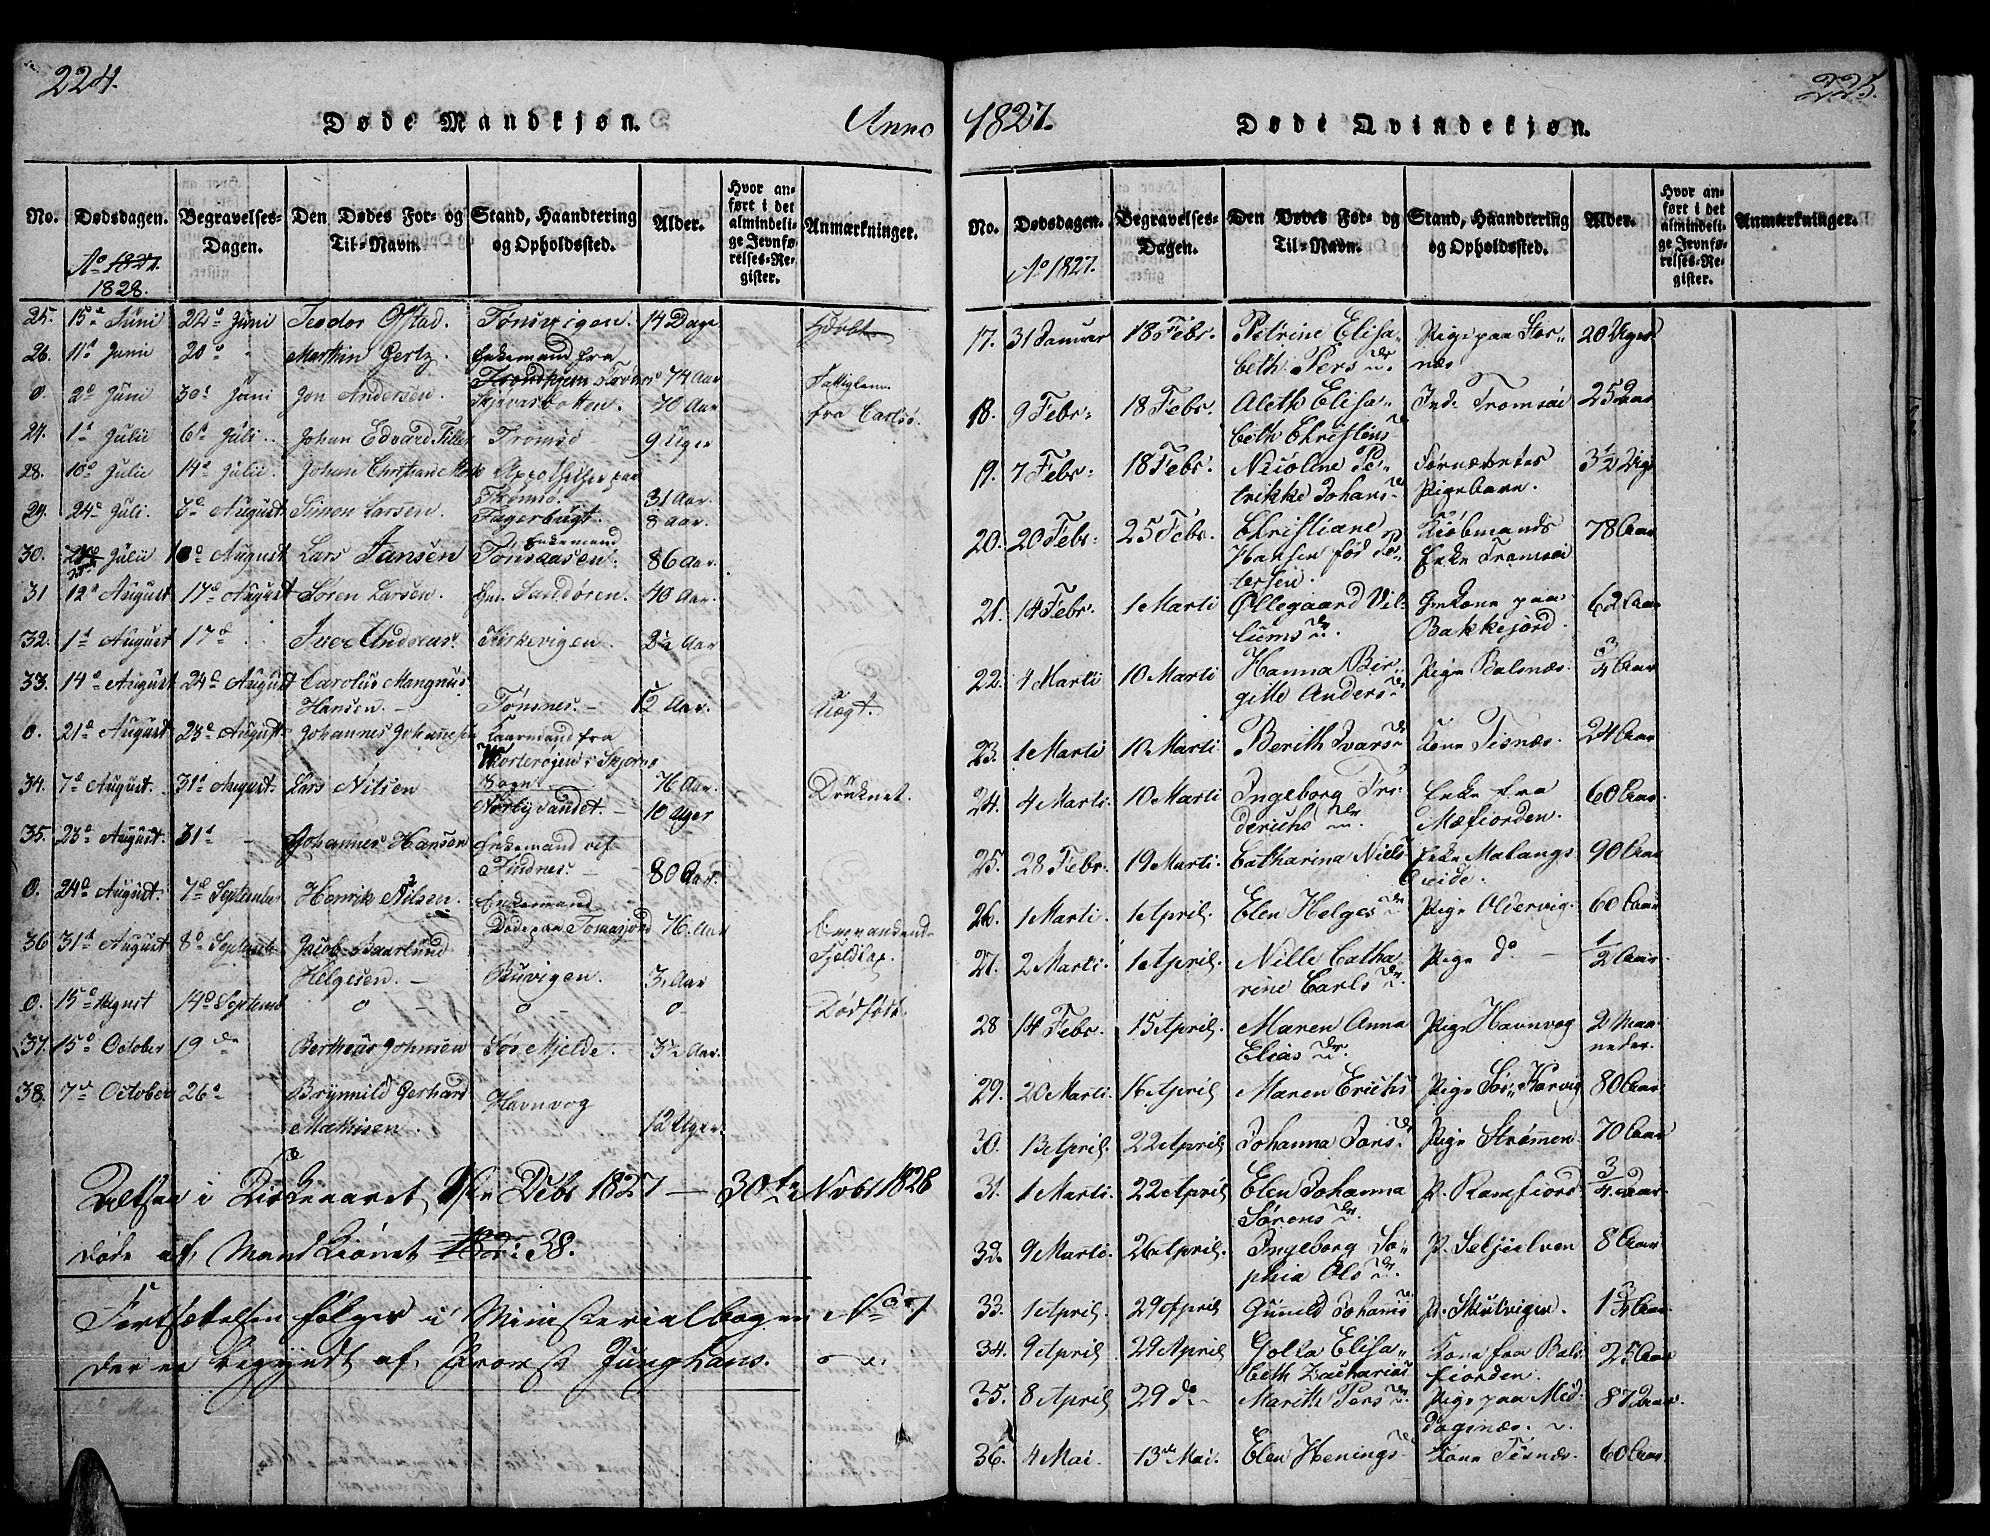 224.
Døde Mandkjøn.
Anno
No.
Dødsdagen.
Begravelses-Dagen.
Den Dødes For- og Til-Navn.
Stand, Haandtering og Opholdssted.
Alder.
Hvor anført i det almindelige Jevnførelses-Register.
Anmærkninger.
Ao 1827.
1828.
25. 15de Juni 22de Juni Teodor Ofstad. Tønsvigen. 14 Dage Hdøbt
26. 11te Junii 20de Marthin Gertz. Enkemand fra
Trondhjem Tovnes 74 Aar
0. 2de Juni 30te Juni Jon Andersen. Skjervasbotten. 70 Aar Fattiglem
fra Carlsø.
27. 1te Julii 6te Juli Johan Edvard Filler Tromsø 9 Uger
28. 10de Julii 14de Julii Johan Christian Apothiker paa
Tromsø. 31 Aar.
29. 24de Juli. 3de August Simon Larsen. Fagerbugt. 8 Aar.
30. Julii 10de August Lars Jansen Enkemand
Tønsaasen. 86 Aar.
31 12te August 17de August Søren Larsen. Sandøren. 40 Aar.
32. 1te August 17de Iver Andreas Kirkevigen. Aar
33. 14de August 24de August Carolus Mangnus
Hansen. Tønsnes. 12 Aar. Vægt.
0. 21de August 23de August Johannes Johannesen Kaarmand fra
Sogn 76 Aar.
34. 7de August. 31te August. Lars Nilsen Nordbysandet. 10 Uger Druknet.
35. 23de August. 31te Johannes Hansen Enkemand
Findnes. 80 Aar.
0. 24de August. 7de September Henrik Nilsen. Enkemand
Døde paa Tomasjord 76 Aar Omvankende
36 31te August 8de September Jacob Baarlund Fjeldlap.
Helgesen. Buvigen. 3 Aar
0. 15de August 14de Septemb 0 0 0 Dødfødt.
37. 15de October 19de Bertheus Johnsen Sør Mjelde. 3½ Aar.
38. 7de October 26de Brynnild Gerhard
Mathisen. Havnvog 12 Uger.
Altsaa i Kirkeaaret 1ste Debr 1827 — 30te Novbr 1828
døde af Mandkiønet 38.
Fortsættelsen følger i Ministerialbogen No 7
der er begyndt af Provst Junghans.
1827.
225.
Døde Qvindekjøn.
No.
Dødsdagen.
Begravelses-Dagen.
Den Dødes For- og Til-Navn.
Stand, Haandtering og Opholdssted.
Alder.
Hvor anført i det almindelige Jevnførelses-Register.
Anmærkninger.
Ao 1827.
17. 31 Januar 18 Febr. Petrine Elisa-
beth Persdr. Pige paa Stor-
næs 20 Uger
18. 9 Febr: 18 Febr. Aleth Elisa-
beth Christensdr Ind. Tromsøe 25 Aar
19. 7 Febr: 18 Febr: Nicoline Pe-
trikke Johansdr Fornævntes
Pigebarn. 3½ Uge
20. 20 Febr: 25 Febr: Christiane
Hansen fød Pe-
tersen. Kiøbmands
Enke Tromsøe 78 Aar
21. 14 Febr. 1 Marti Øllegaard Vil-
lumsdr. Gmkone paa
Bakkejord. 62 Aar
22. 4 Marti 10 Marti Hanna Bir-
gitte Andersdr Pige Balsnæs. ¾ Aar
23. 1 Marti 10 Marti Berith Ivarsdr Kone Tisnæs. 24 Aar
24. 4 Marti. 10 Marti Ingeborg Fri-
derichsdr. Enke fra
Mæfiorden. 60 Aar.
25. 28 Febr. 19 Marti. Catharina Niels Enke Malangs
Eide. 90 Aar
26. 1 Marti. 1 April. Elen Helgesdr Pige Oldervig. 60 Aar
27. 2 Marti. 1 April. Nille Catha-
rine Carlsdr Pige do ½ Aar.
28 14 Febr. 15 April. Maren Anna
Eliasdr. Pige Havnvog 2 Maa-
neder.
29. 20 Marti. 16 April Maren Erichs Pige Sør Karvig 80 Aar
30. 13 April. 22 April Johanna Larsdr Pige Strømmen 70 Aar
31. 1 Marti. 22 April Elen Johanna
Sørensdr P. Ramfiord ¾ Aar.
32. 9 Marti. 26 April. Ingeborg So-
phia Olsdr. P. Seljielven 8 Aar
33. 1 April. 29 April Gunnild Johansdr P. Skulvigen. Aar
34. 9 April 29 April Golla Elisa-
beth Zacharias Kone fra Bals-
fiorden. 25 Aar
35. 8 April 29 do Marith Persdr. Pige paa Mid-
dagsnæs. 87 Aar.
36. 4 Mai. 13de Mai. Elen Henings Kone Tisnæs. 60 Aar.